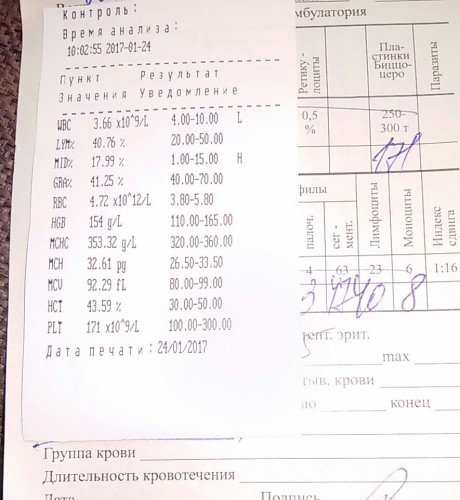 Контроль:
Время анализа:
10:02:55 2017-01-24
Пункт Результат
Значения Уведомление
WBC 3.66 x10^9/L 4.00-10.00 L
LYM% 40.76 % 20.00-50.00
MID% 17.99 % 1.00-15.00 H
GRA% 41.25 % 40.00-70.00
RBC 4.72 x10^12/L 3.80-5.80
HGB 154 g/L 110.00-165.00
MCHC 353.32 g/L 320.00-360.00
MCH 32.61 pg 26.50-33.50
MCV 92.29 fL 80.00-99.00
HCT 43.59 % 30.00-50.00
PLT 171 x10^9/L 100.00-300.00
Дата печати: 24/01/2017
мбулатория
Ретику-
лоциты
Пла-
стинки
Биццо-
церо
Паразиты
0,5
%
250-
300 т
171
филы
палоч.
сег-
мент.
Лимфоциты
Моноциты
Индекс
сдвига
4 63 23 6 1:16
3 40 8
эрит.
max
крови
конец
Группа крови
Длительность кровотечения
Дата Подпись